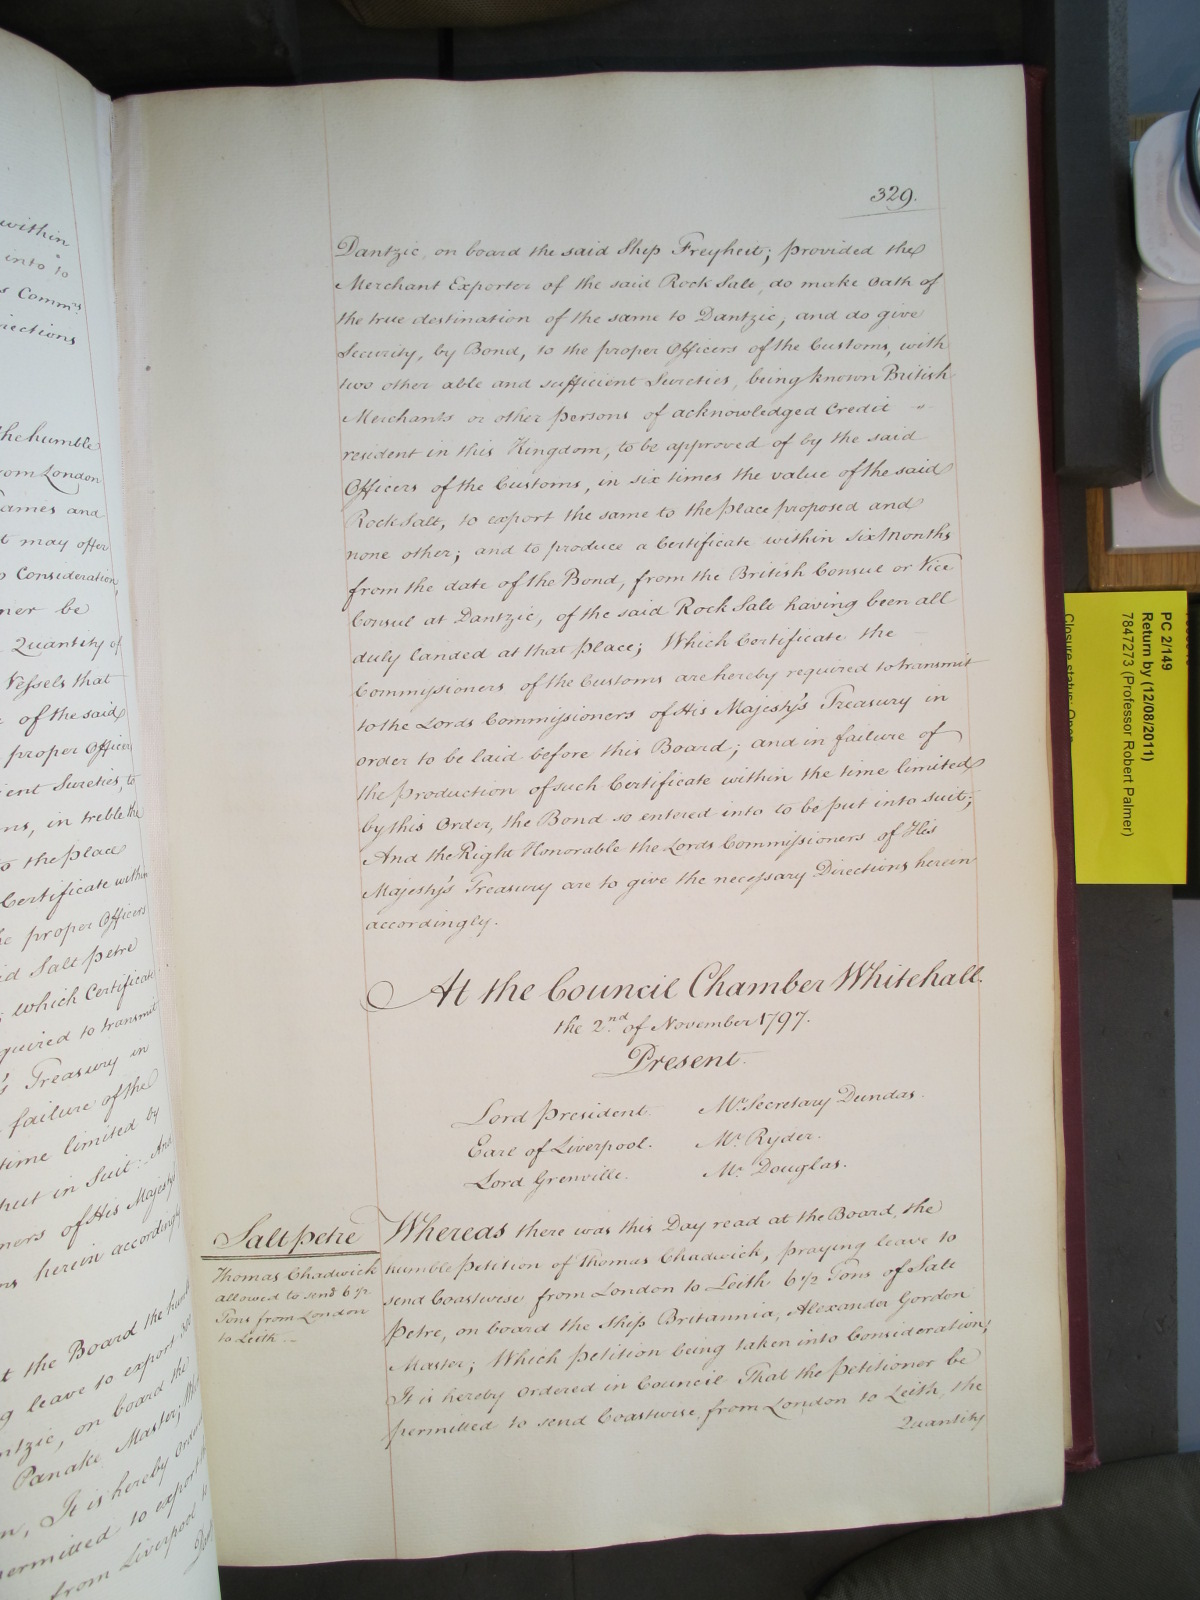 329.
Dantzic, on board the said Ship Freyheit; provided the
Merchant Exporter of the said Rock Salt, do make Oath of
the true destination of the same to Dantzic, and do give
Security, by Bond, to the proper Officers of the Customs, with
two other able and sufficient Sureties, being known British
Merchants or other persons of acknowledged Credit
resident in this Kingdom, to be approved of by the said
Officers of the Customs, in six times the value of the said
Rock Salt, to export the same to the place proposed and
none other; and to produce a Certificate within six Months
from the date of the Bond, from the British Consul or Vice
Consul at Dantzic, of the said Rock Salt having been all
duly landed at that place; Which Certificate the
Commissioners of the Customs are hereby required to transmit
to the Lords Commissioners of His Majesty's Treasury in
order to be laid before this Board; and in failure of
the production of such Certificate within the time limited
by this Order, the Bond so entered into to be put into suit;
And the Right Honorable the Lords Commissioners of His
Majesty's Treasury are to give the necessary Directions herein
accordingly.
At the Council Chamber Whitehall.
the 2.nd of November 1797.
Present.
Lord President Mr. Secretary Dundas.
Earl of Liverpool. Mr. Ryder.
Lord Grenville. Mr. Douglas.
Salt petre
Thomas Chadwick
allowed to send 6 1/2
Tons from London
to Leith
Whereas there was this Day read at the Board, the
humble petition of Thomas Chadwick, praying leave to
send Coastwise from London to Leith 6 1/2 Tons of Salt
Petre, on board the Ship Britannia, Alexander Gordon
Master; Which petition being taken into Consideration,
It is hereby Ordered in Council That the petitioner be
permitted to send Coastwise from London to Leith, the
Quantity
within
into to
s Comm.rs
irections
the humble
rom London
ames and
t may offer
Consideration,
ner be
Quantity of
Vessels that
of the said
proper Officers
ent Sureties, to
ns, in treble the
the place
Certificate within
e proper Officers
id Salt petre
which Certificate
quired to transmit
's Treasury in
failure of the
time limited by
put in Suit: And
ners of His Majesty
ns herein accordingly
t the Board the hum
g leave to export
ntzic, on board the
Panake Master;
n, It is hereby Order
ermitted to export
from Liverpool to
PC 2/149
Return by (12/08/2011)
7847273 (Professor Robert Palmer)
Closure status: Open